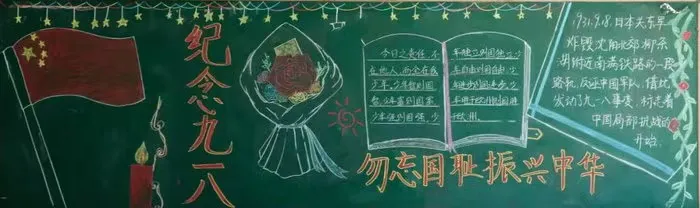 纪念九一八
今日之责任,不
在他人,而全在我
少年,少年智则国
智,少年富则国富
少年强则国强,少
年独立则国独立,少
年自由则国自由,少
年进步则国进步,少
于欧洲
1931.9.18,日本关东军
炸毁沈阳北郊柳条
湖附近南满铁路的一段
路轨,反诬中国军队,借此
发动九一八事变,标志着
中国局部抗战的
开始.
勿忘国耻振兴中华